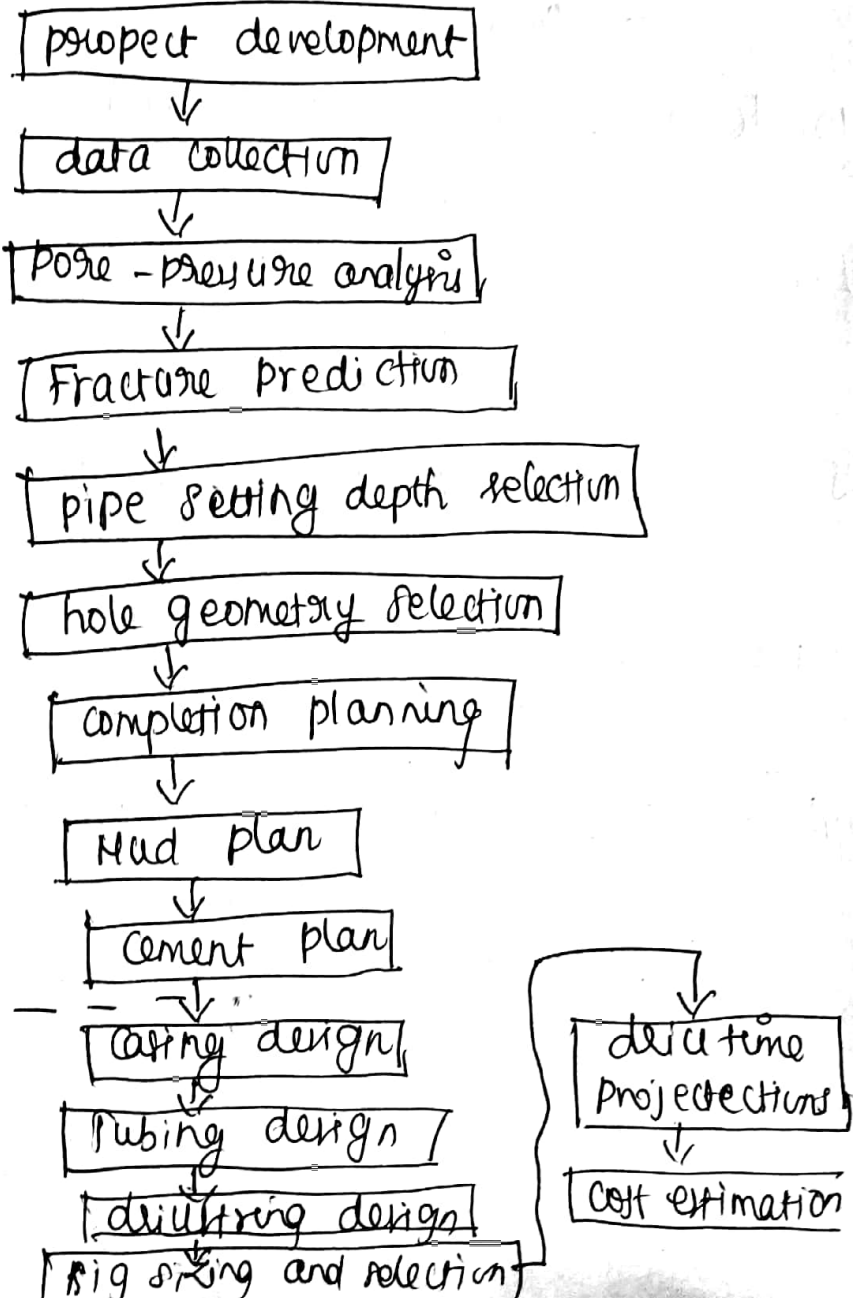 propect development
data collection
Pore - pressure analysis
Fracture prediction
pipe setting depth selection
hole geometry selection
completion planning
Mud plan
Cement plan
Casing design
Tubing design
drillstring design
Rig sizing and selection
drill time
Projectections
Cost estimation